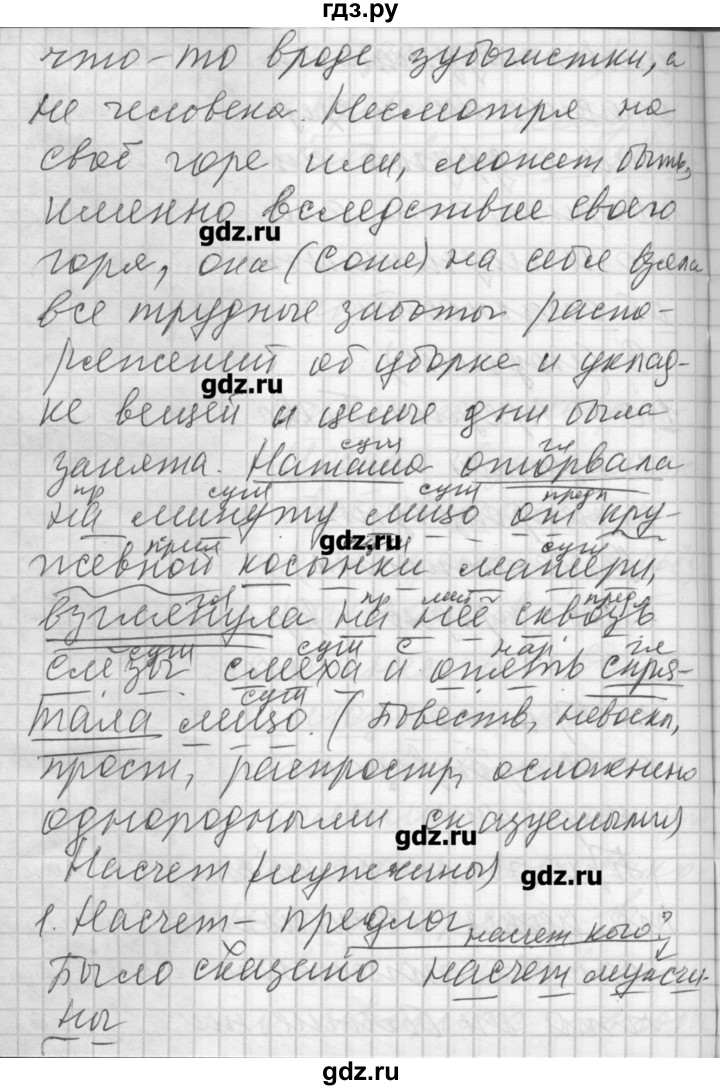 гдз.ру
что-то вроде зубочистки, а
не человека. Несмотря на
своё горе или, может быть,
именно вследствие своего
gdz.ru
горя, она (Соня) на себя взяла
все трудные заботы распо-
ряжений об уборке и уклад-
gdz.ru
ке вещей и целые дни была
сущ гл
занята. Наташа оторвала
пр сущ сущ предл
на минуту лицо от кру-
gdz.ru
прил сущ сущ
жевной косынки матери,
гл пр мест предл
взглянула на неё сквозь
сущ сущ с нар гл
слёзы смеха и опять спря-
сущ
тала лицо. (Повеств, невоскл,
прост, распростр, осложнено
однородными сказуемыми)
gdz.ru
Насчет (мужчины)
gdz.ru
1. Насчет - предлог
насчет кого?
Было сказано насчет мужчи-
ны
gdz.ru